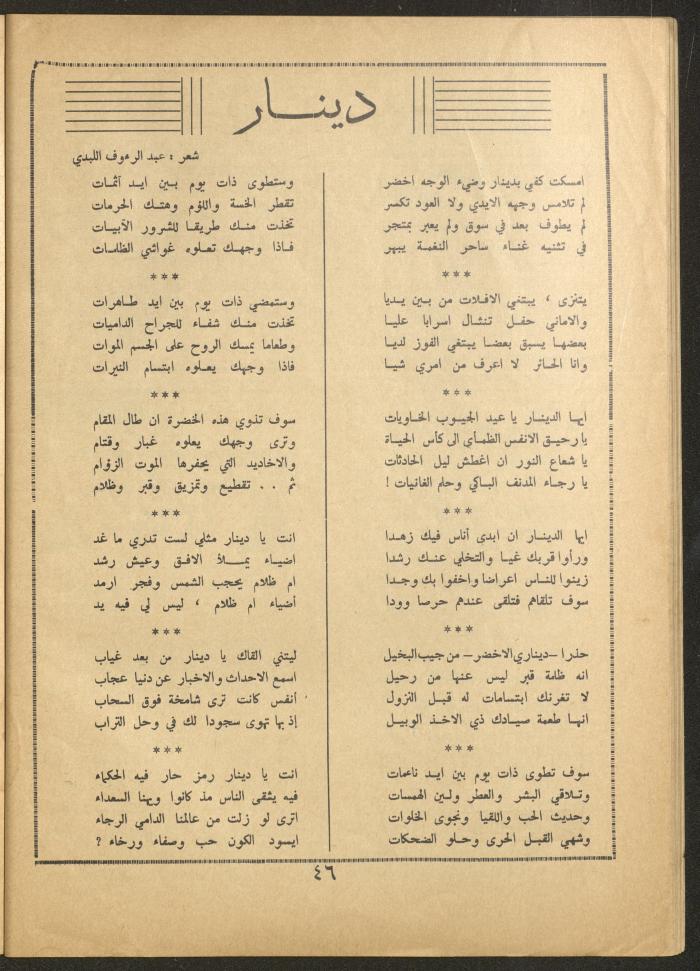 دينــار
شعر : عبد الرءوف اللبدي
امسكت كفي بدينار وضيء الوجه اخضر
لم تلامس وجهه الايدي ولا العود تكسر
لم يطوف بعد في سوق ولم يعبر بمتجر
في تثنيه غناء ساحر النغمة يبهر
***
يتنزى ، يبتغي الافلات من بين يديا
والاماني حفل تنثال اسرابا عليا
بعضها يسبق بعضا يبتغي الفوز لديا
وانا الحائر لا اعرف من امري شيا
***
ايها الدينار يا عيد الجيوب الخاويات
يا رحيق الانفس الظمأى الى كأس الحياة
يا شعاع النور ان اغطش ليل الحادثات
يا رجاء المدنف الباكي وحلم الغانيات !
***
ايها الدينار ان ابدى أناس فيك زهدا
ورأوا قربك غيا والتخلي عنك رشدا
زينوا للناس اعراضا واخفوا بك وجدا
سوف تلقاهم فتلقى عندهم حرصا وودا
***
حذرا – ديناري الاخضر – من جيب البخيل
انه ظلمة قبر ليس عنها من رحيل
لا تغرنك ابتسامات له قبل النزول
انها طعمة صيادك ذي الاخذ الوبيل
***
سوف تطوى ذات يوم بين ايد ناعمات
وتلاقي البشر والعطر ولين الهمسات
وحديث الحب واللقيا ونجوى الخلوات
وشهي القبل الحرى وحلو الضحكات
وستطوى ذات يوم بين ايد آثمات
تقطر الخسة واللؤم وهتك الحرمات
تخذت منك طريقا للشرور الآبيات
فاذا وجهك تعلوه غواشي الظلمات
***
وستمضي ذات يوم بين ايد طاهرات
تخذت منك شفاء للجراح الداميات
وطعاما يمسك الروح على الجسم الموات
فاذا وجهك يعلوه ابتسام النيرات
***
سوف تذوي هذه الخضرة ان طال المقام
وترى وجهك يعلوه غبار وقتام
والاخاديد التي يحفرها الموت الزؤام
ثم . . تقطيع وتمزيق وقبر وظلام
***
انت يا دينار مثلي لست تدري ما غد
اضياء يملأ الافق وعيش رشد
ام ظلام يحجب الشمس وفجر ارمد
أضياء ام ظلام ، ليس لي فيه يد
***
ليتني القاك يا دينار من بعد غياب
اسمع الاحداث والاخبار عن دنيا عجاب
أنفس كانت ترى شامخة فوق السحاب
إذ بها تهوى سجودا لك في وحل التراب
***
انت يا دينار رمز حار فيه الحكماء
فيه يشقى الناس مذ كانوا ويهنا السعداء
اترى لو زلت من عالمنا الدامي الرجاء
ايسود الكون حب وصفاء ورخاء ؟
٤٦